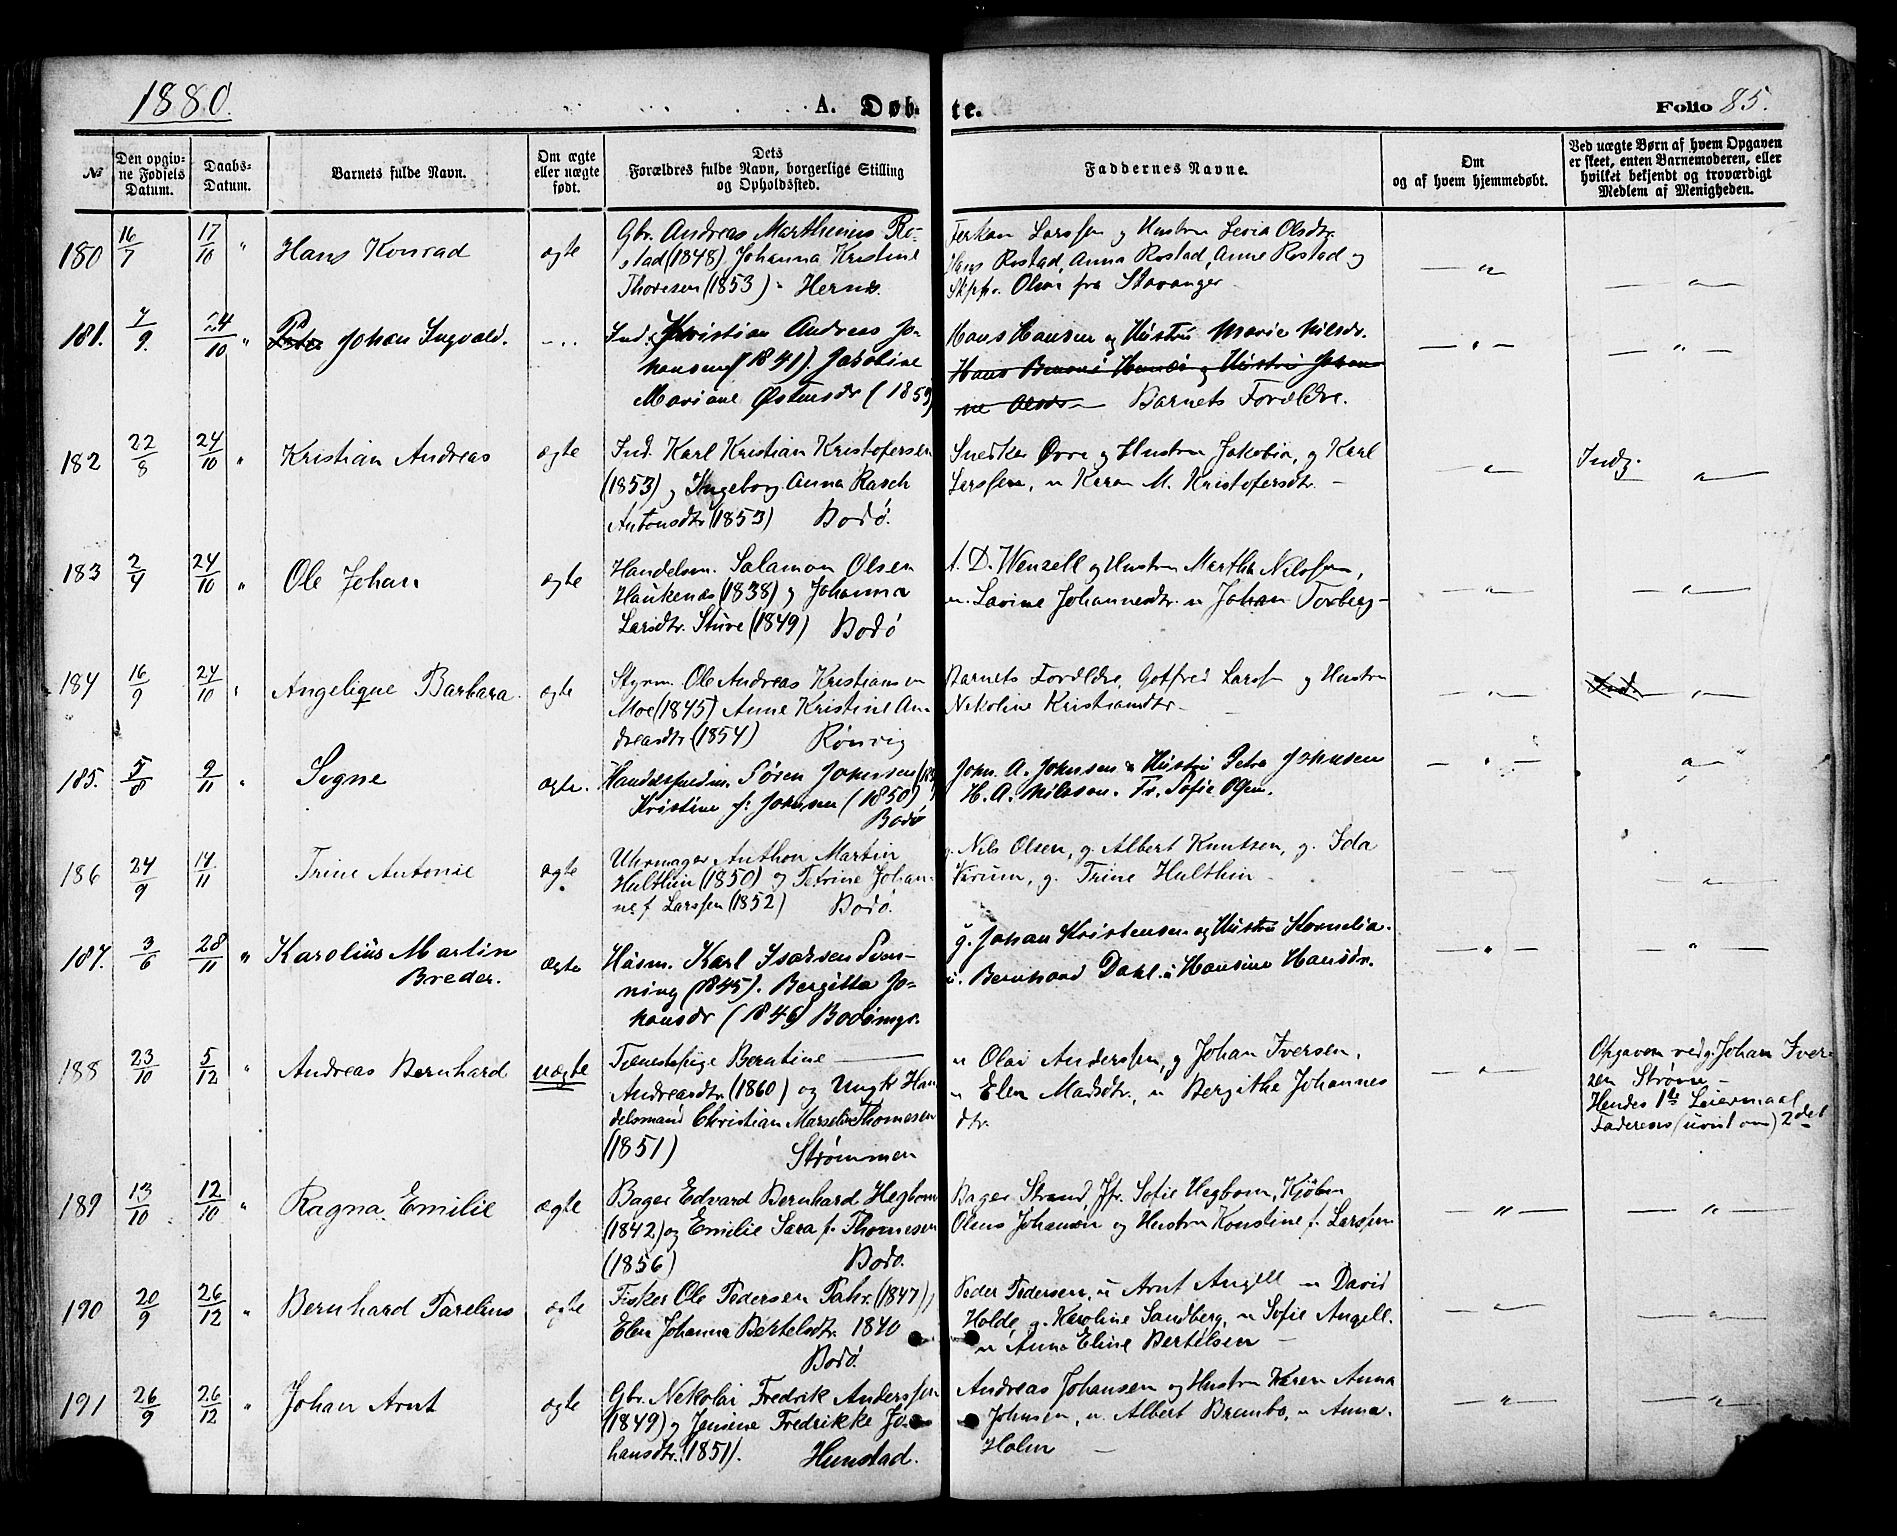 1880.
A. Døbte.
Folio 85.
№
Den opgiv-
ne Fødsels
Datum.
Daabs-
Datum.
Barnets fulde Navn.
Om ægte
eller uægte
født.
Dets
Forældres fulde Navn, borgerlige Stilling
og Opholdssted.
Faddernes Navne.
Om
og af hvem hjemmedøbt.
Ved uægte Børn af hvem Opgaven
er skeet, enten Barnemoderen, eller
hvilket bekjendt og troværdigt
Medlem af Menigheden.
180 16/7 17/10 " Hans Konrad ægte
Gbr. Andreas Marthinus Ro-
stad (1848), Johanna Kristine
Thoresen (1853) - Hernæs.
Larssen og Hustru Olsdtr.
Hans Rostad, Anna Rostad, Anne Rostad og
Skppr. Olsen fra Stavanger -
181. 7/9. 24/10 " Peter Johan Ingvald. - . .
Ind. Kristian Andreas Jo-
hansen (1841). Jakobine
Mariane Østensdr (1853)
Hans Hansen og Hustru Marie Nilsdr.
Hans og Hustru Johan-
ne Olsdr - Barnets Forældre.
182 22/8 24/10 " Kristian Andreas ægte
Ind. Karl Kristian Kristofersen
(1853) og Ingeborg Anna Rasch
Antonsdtr (1853) Bodø.
Snedker og Hustru Jakobia, og Karl
Larssen, u Karen M. Kristofersdtr. -
Indg.
183 2/4 24/10 " Ole Johan ægte
Handelsm. Salamon Olsen
Haukenæs (1838) og Johanna
Larsdtr. Sture (1849) Bodø
D. Wensell og Hustru Martha Nilssen,
u. Lavine Johannesdtr. u Johan Torberg -
184 16/9 24/10 " Angelique Barbara. ægte
Styrm. Ole Andreas Kristiansen
Moe (1845) Anne Kristine An-
dreasdtr (1854) Rønvig
Barnets Forældre, Gotfred Larssen og Hustru
Nikoline Kristiansdtr -
185. 5/8 9/11 " Signe ægte.
Søren Johnsen
Kristine f: Johnsen (1850)
Bodø
John. A. Johnsen u Hustru Petra Johnsen
H. A. Nilsson. Fr. Sofie Olsen.
186 24/9 14/11 Trine Antonie ægte
Uhrmager Anthon Martin
Hulthin (1850) og Petrine Johan-
ne f. Larssen (1852) Bodø.
g. Nils Olsen, g. Albert Knutsen, g. Ida
Virum, g. Trine Hulthin -
187. 3/6 28/11 " Karolius Martin
Breder. ægte
Husm. Karl Ivarsen Sven-
ning (1845). Bergitta Jo-
hansdr (1846) Bodømgr.
g. Johan Kristensen og Hustru Kornelia.
u. Bernhard Dahl. u Hansine Hansdr.
188 23/10 5/12 " Andreas Bernhard uægte
Tjenestepige Berntine
Andreasdtr. (1860) og Ungk. Han-
delsmand Christian Marselius Thomesen
(1851) Strømmen
u Olai Anderssen, g Johan Iversen,
u Elen Madsdtr., u Bergithe Johannes
dtr.
Opgaven ved g. Johan Iver-
sen Strøm -
Hendes 1ste Leiermaal
Faderens (uvist om) 2det
189 13/10 12/10 " Ragna Emilie ægte
Bager Edvard Bernhard Hegbom
(1842) og Emilie Sara f. Thomesen
(1856) Bodø.
Bager Strand, Jfr. Sofie Hegbom, Kjøbm
Olaus Johansen og Hustru Konstine f. Larssen
190 20/9 26/12 " Bernhard Parelius ægte
Fisker Ole Pedersen (1847),
Elen Johanna Bertelsdtr. 1840
Bodø.
Peder Pedersen, u Arnt Angell u David
Holde, g. Karoline Sandberg, u Sofie Angell.
u Anna Eline Bertelsen -
191 26/9 26/12 " Johan Arnt ægte
Gbr. Nekolai Fredrik Anderssen
(1849) og Jensine Fredrikke Jo-
hansdtr. (1851). Hunstad.
Andreas Johansen og Hustru Karen Anna
Johnsen, u. Albert Brembo, u Anna.
Holm -